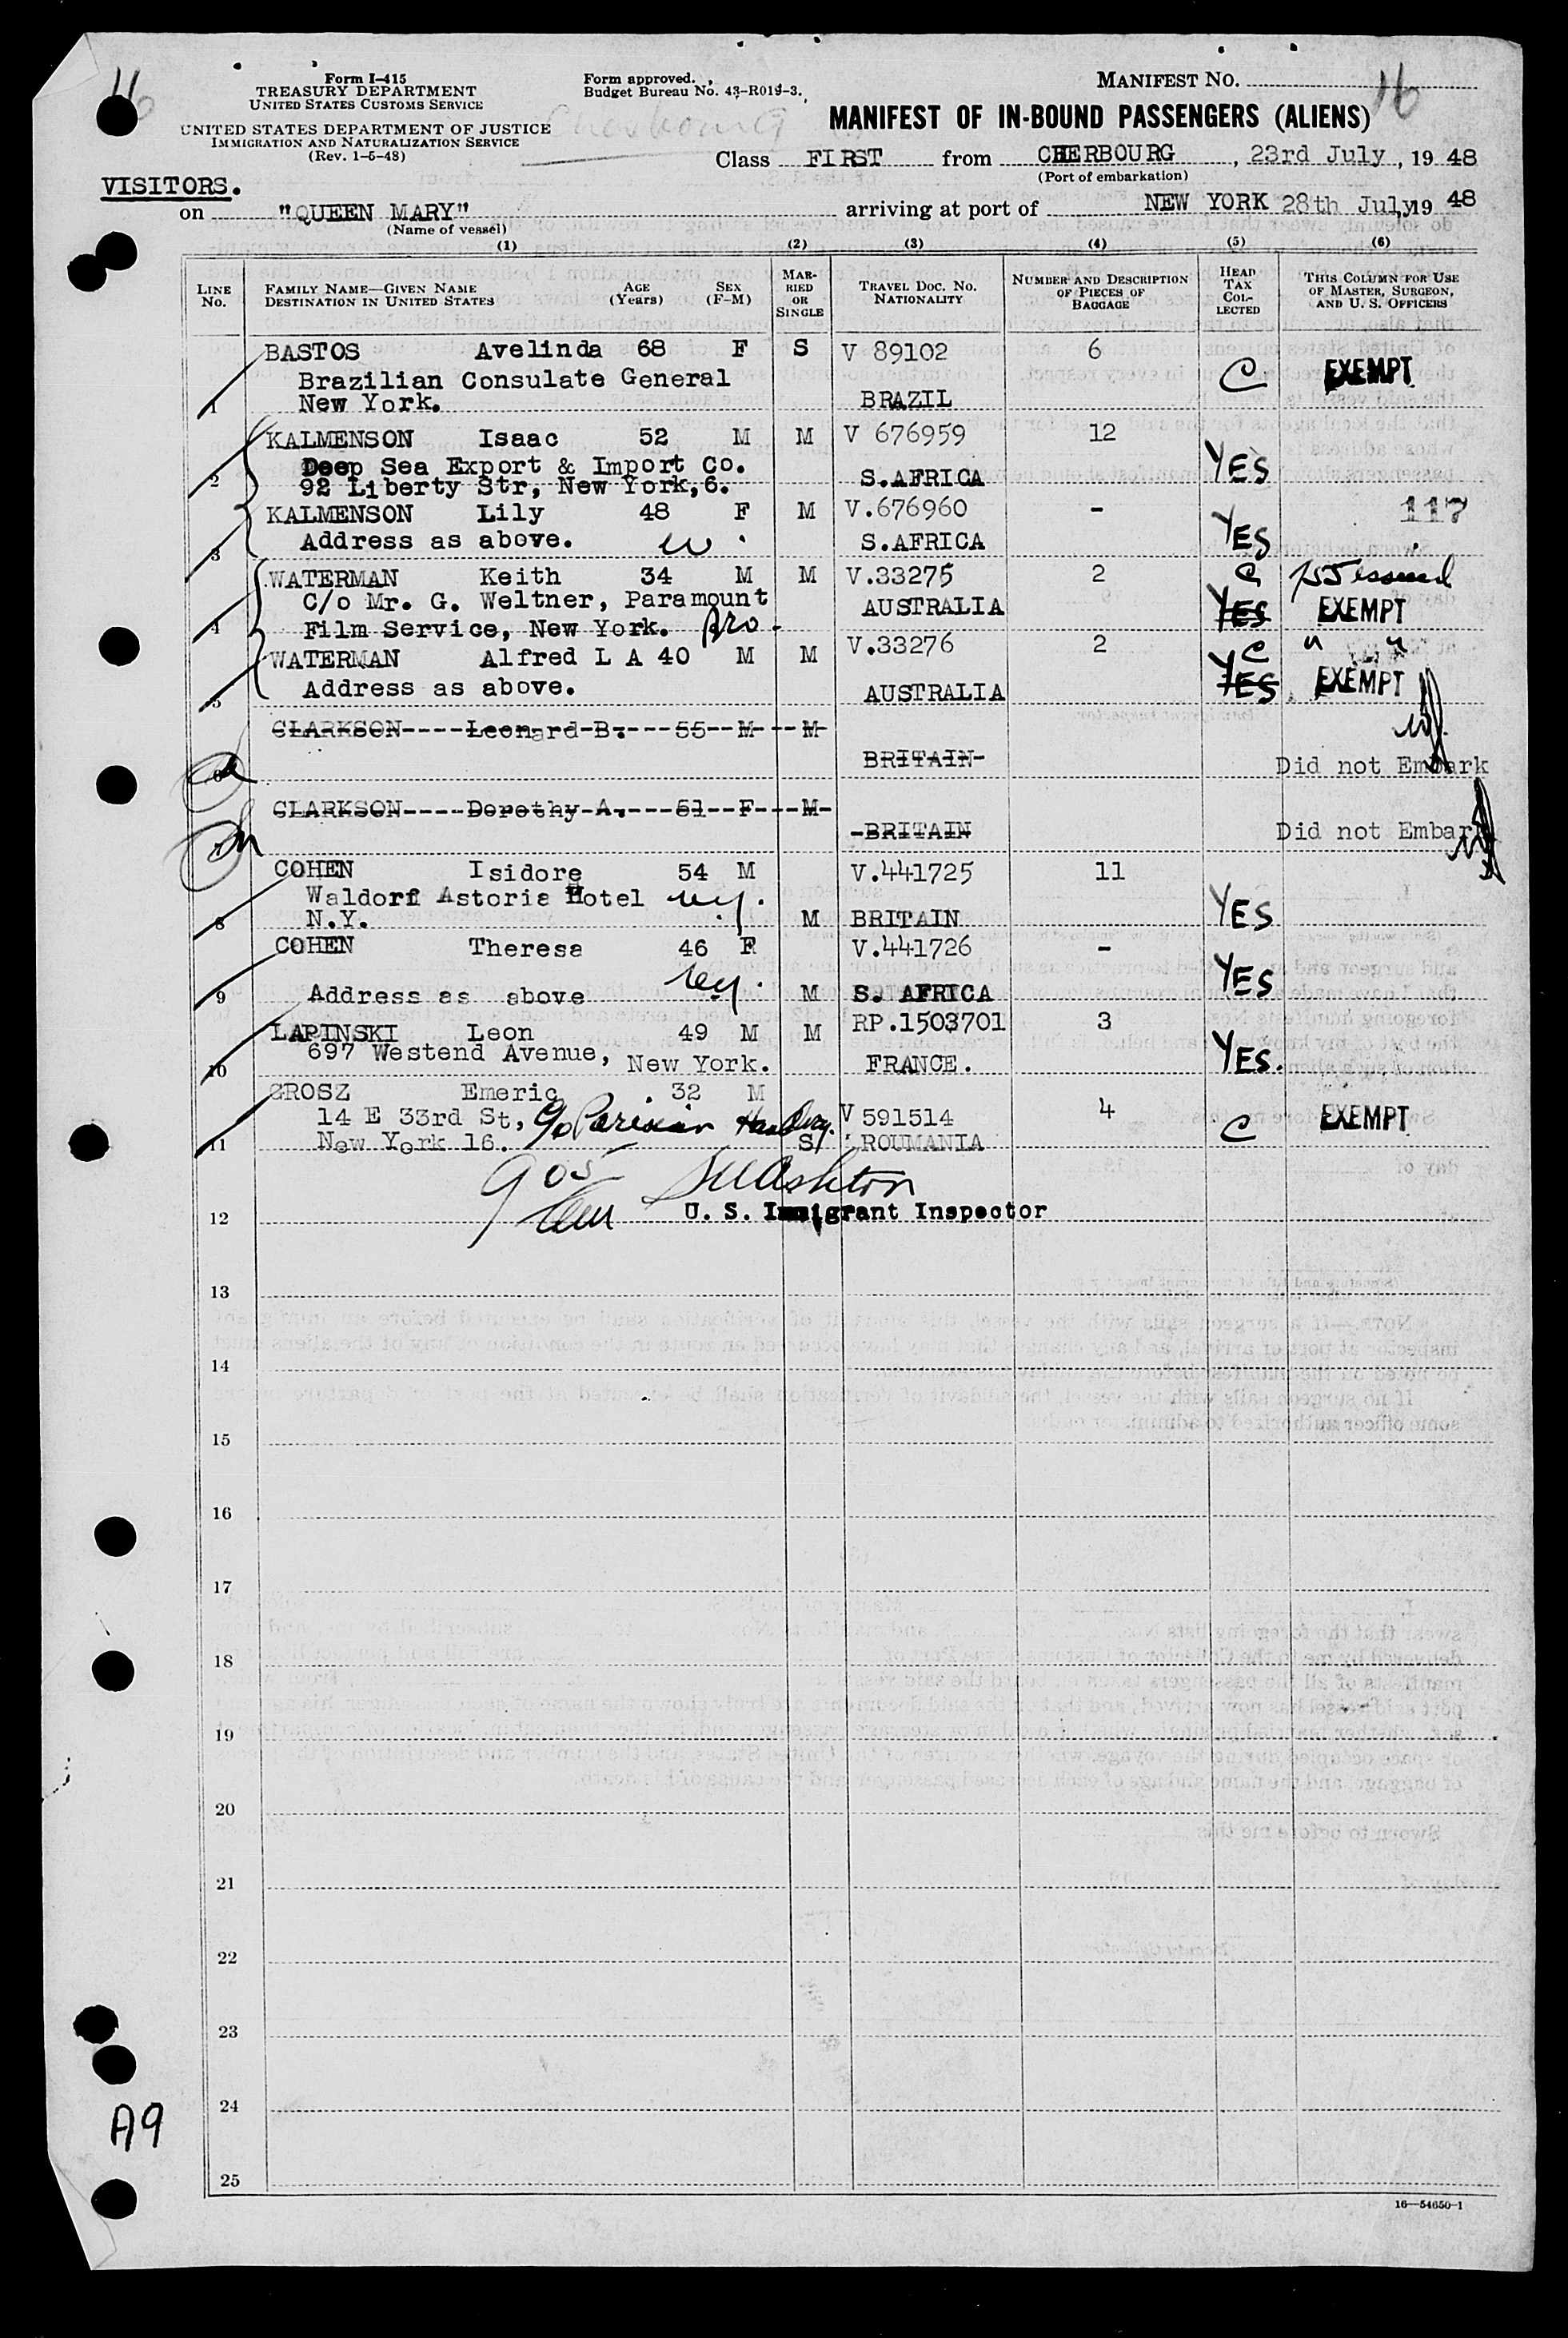 16
Form I-415
TREASURY DEPARTMENT
UNITED STATES CUSTOMS SERVICE
UNITED STATES DEPARTMENT OF JUSTICE
IMMIGRATION AND NATURALIZATION SERVICE
(Rev. 1-5-48)
Form approved.
Budget Bureau No. 43-R019-3.
Cherbourg
MANIFEST NO. 16
MANIFEST OF IN-BOUND PASSENGERS (ALIENS)
Class FIRST from CHERBOURG, 23rd July, 1948
(Port of embarkation)
VISITORS.
on "QUEEN MARY" arriving at port of NEW YORK 28th July, 1948
(Name of vessel)
(1) (2) (3) (4) (5) (6)
LINE No. FAMILY NAME—GIVEN NAME DESTINATION IN UNITED STATES AGE (Years) SEX (F-M) MARRIED OR SINGLE TRAVEL DOC. NO. NATIONALITY NUMBER AND DESCRIPTION OF PIECES OF BAGGAGE HEAD TAX COLLECTED THIS COLUMN FOR USE OF MASTER, SURGEON, AND U. S. OFFICERS
BASTOS Avelinda 68 F S V 89102 6
Brazilian Consulate General C EXEMPT
1 New York. BRAZIL
KALMENSON Isaac 52 M M V 676959 12
Deep Sea Export & Import Co. YES
2 92 Liberty Str, New York,6. S.AFRICA
KALMENSON Lily 48 F M V.676960 - 117
3 Address as above. S.AFRICA YES
WATERMAN Keith 34 M M V.33275 2 C issued
C/o Mr. G. Weltner, Paramount AUSTRALIA YES EXEMPT
4 Film Service, New York. Bro.
WATERMAN Alfred L A 40 M M V.33276 2 C " "
5 Address as above. AUSTRALIA YES EXEMPT
CLARKSON----Leonard-B.---55--M---M-
6 BRITAIN- Did not Embark
CLARKSON----Dorothy-A.---51--F---M-
7 -BRITAIN Did not Embark
COHEN Isidore 54 M V.441725 11
Waldorf Astoria Hotel YES
8 N.Y. M BRITAIN
COHEN Theresa 46 F V.441726 -
9 Address as above M S. AFRICA YES
LAPINSKI Leon 49 M M RP.1503701 3
10 697 Westend Avenue, New York. FRANCE. YES.
GROSZ Emeric 32 M
14 E 33rd St, c/o Parisian V 591514 4 C EXEMPT
11 New York 16. S ROUMANIA
905
12 U. S. Immigrant Inspector
13
14
15
16
17
18
19
20
21
22
23
24
25
A9
16—54650-1